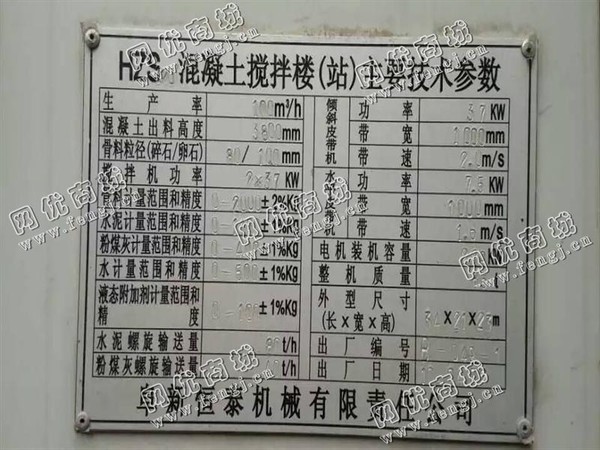 HZS 混凝土搅拌楼(站)主要技术参数
生产率 100m³/h
混凝土出料高度 3800mm
骨料粒径(碎石/卵石) 80/100mm
搅拌机功率 2×37 KW
骨料计量范围和精度 0-2000±2%Kg
水泥计量范围和精度
粉煤灰计量范围和精度 ±1%Kg
水计量范围和精度 ±1%Kg
液态附加剂计量范围和精度 ±1%Kg
水泥螺旋输送量 t/h
粉煤灰螺旋输送量 t/h
倾斜皮带机 功率 37 KW
带宽 1000mm
带速 2.0m/s
水平皮带机 功率 7.5 KW
带宽 1000mm
带速 1.5m/s
电机装机容量
整机质量
外型尺寸(长×宽×高) 34×21×23m
出厂编号
出厂日期
阜新恒泰机械有限责任公司
网优商城
www.fengj.com